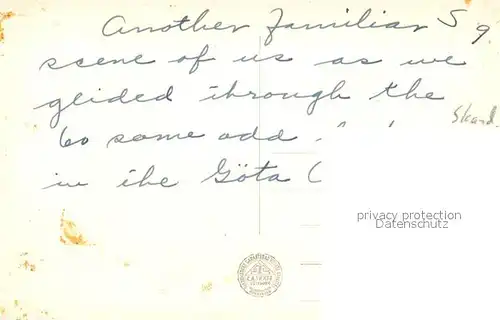 Another familiar S 9.
scene of us as we
glided through the
60 some odd
Skand.
in the Göta (
privacy protection
Datenschutz